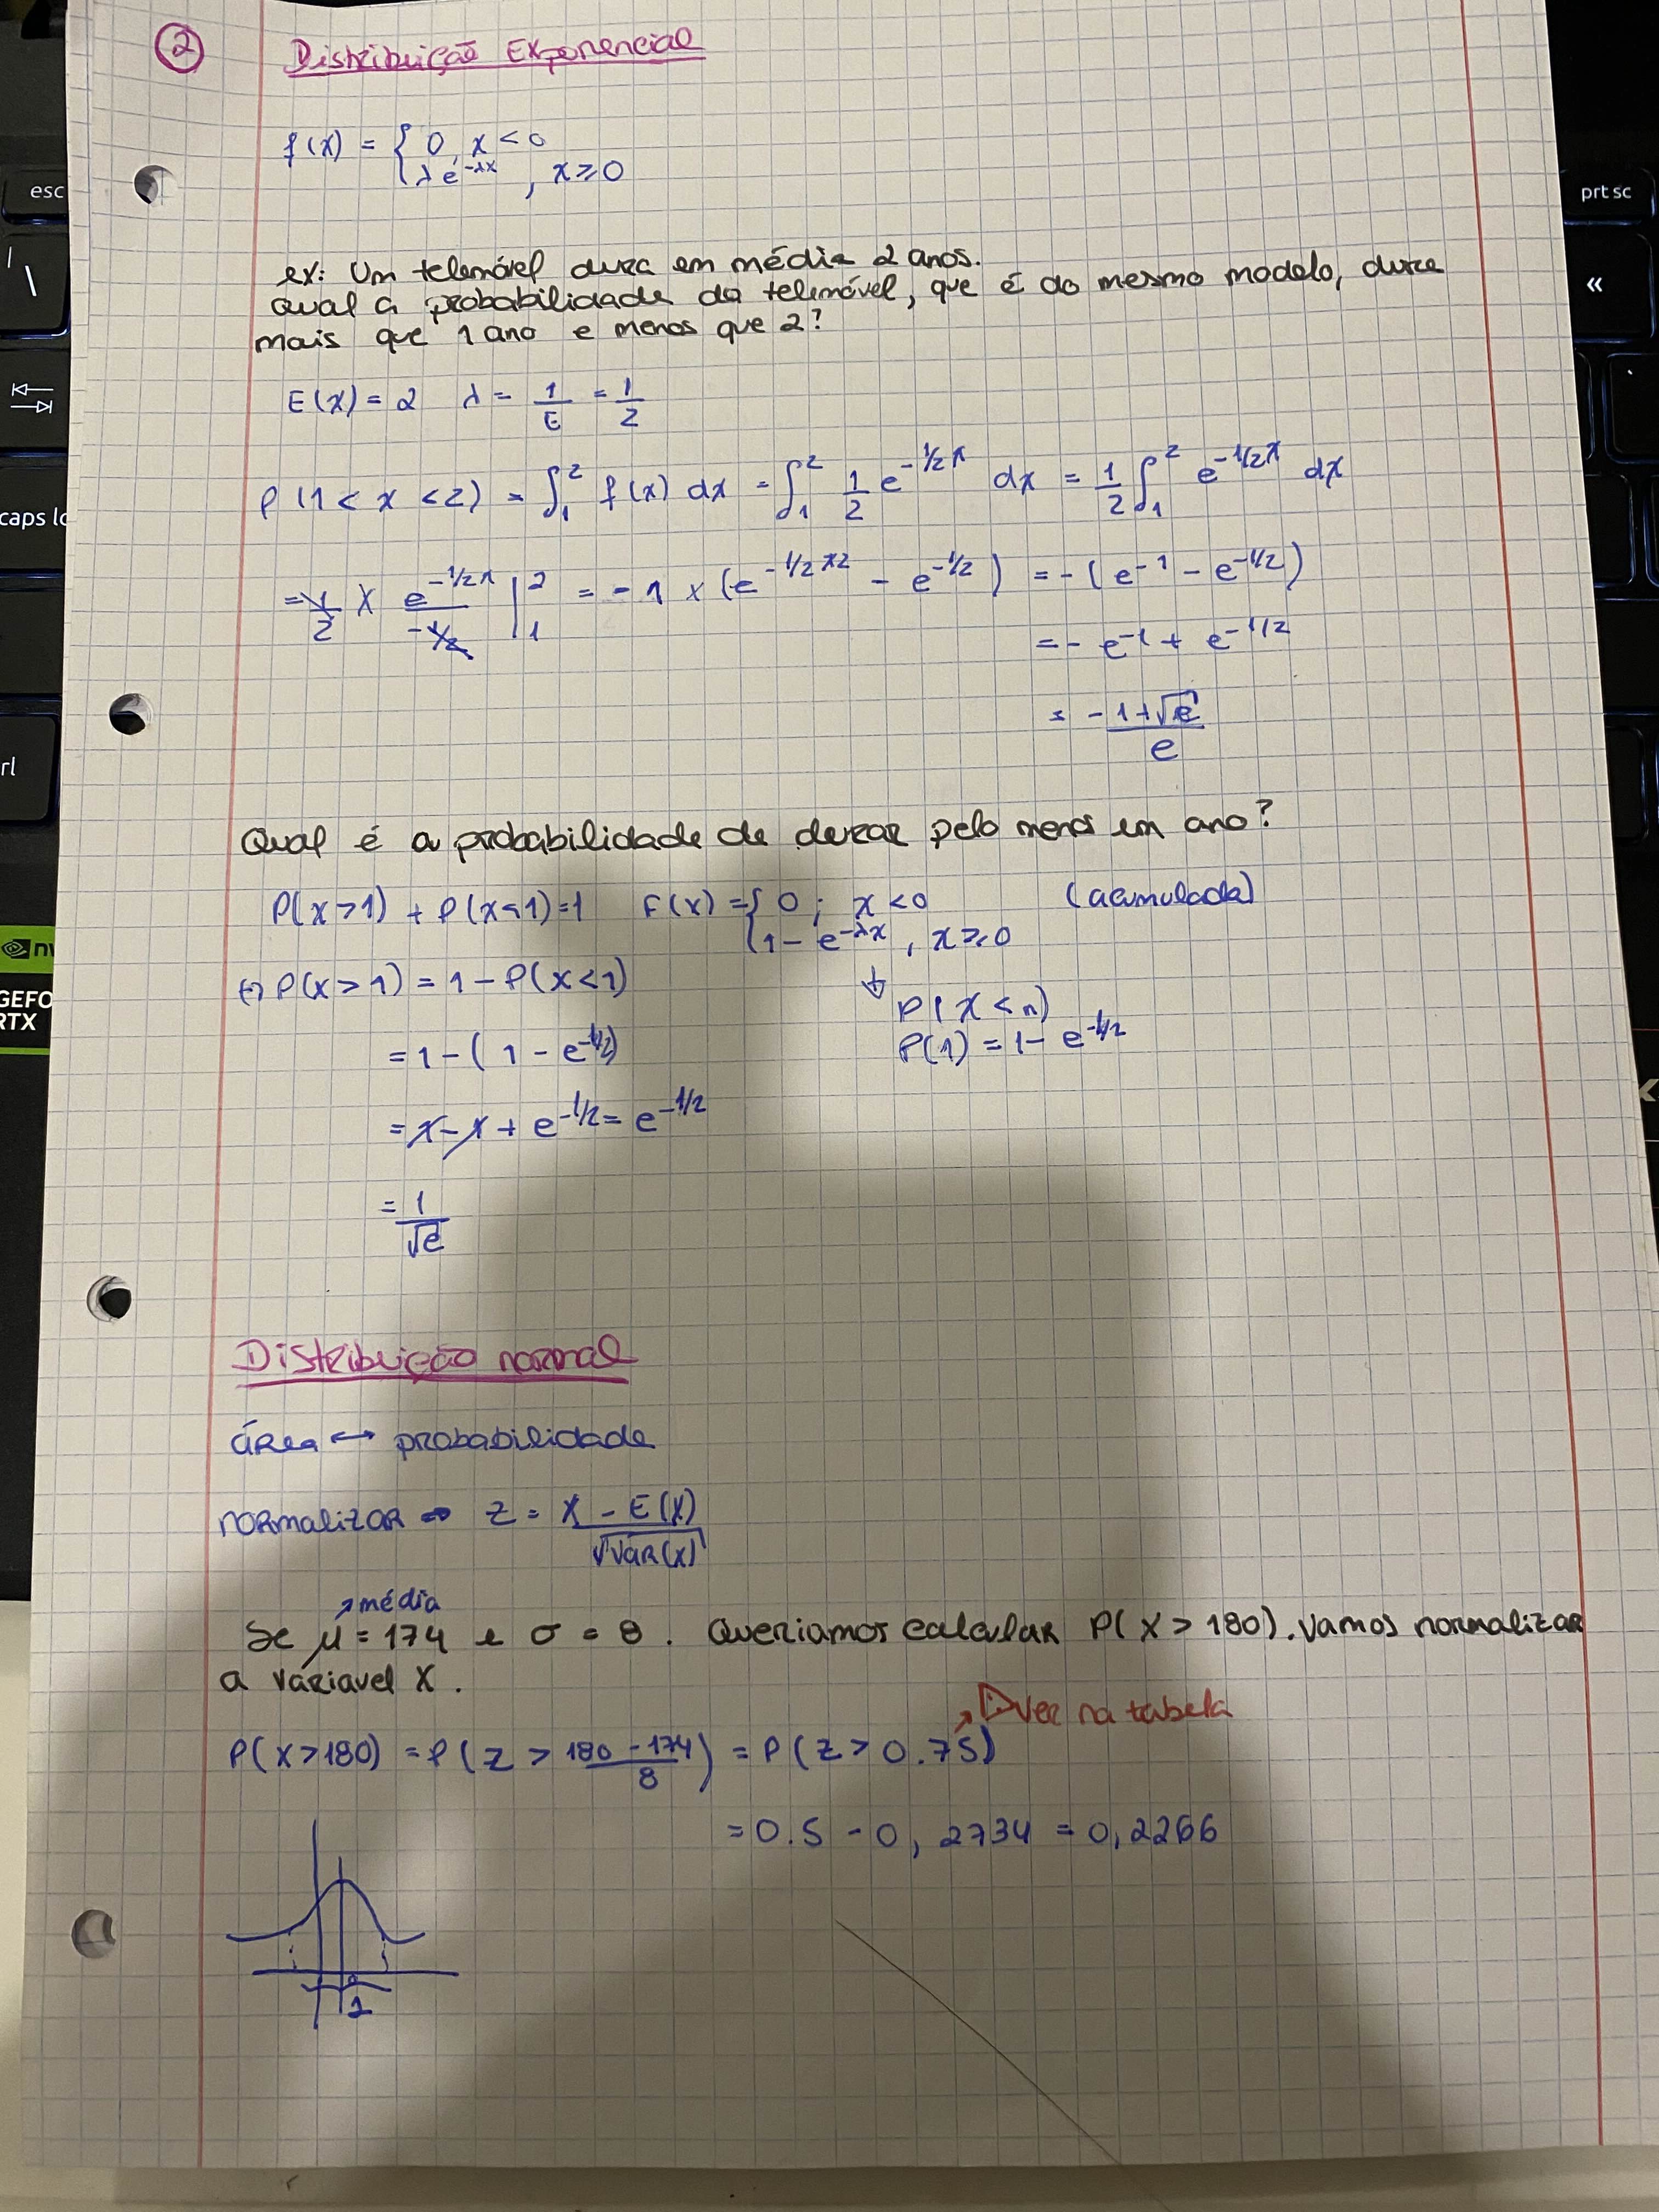 ② Distribuição Exponencial
f(x) = { 0, x < 0
λ e^-λx , x ≥ 0
ex: Um telemóvel dura em média 2 anos.
Qual a probabilidade do telemóvel, que é do mesmo modelo, dure
mais que 1 ano e menos que 2?
E(x) = 2 λ = 1/E = 1/2
P(1 < x < 2) = ∫₁² f(x) dx = ∫₁² 1/2 e^-1/2x dx = 1/2 ∫₁² e^-1/2x dx
= 1/2 × e^-1/2x / -1/2 |₁² = -1 × (e^-1/2×2 - e^-1/2) = -(e^-1 - e^-1/2)
= - e^-1 + e^-1/2
= -1+√e / e
Qual é a probabilidade de durar pelo menos um ano?
P(x>1) + P(x<1)=1 F(x) = { 0 ; x < 0 (acumulada)
1 - e^-λx , x ≥ 0
(=) P(x > 1) = 1 - P(x<1)
↓ P(X < n)
= 1 - ( 1 - e^-1/2) P(1) = 1 - e^-1/2
= 1 - 1 + e^-1/2 = e^-1/2
= 1/√e
Distribuição normal
área ↔ probabilidade
normalizar → z = X - E(X) / √Var(x)
↗ média
Se μ = 174 e σ = 8 . Queriamos calcular P(X > 180). Vamos normalizar
a váriavel X .
↗ Ver na tabela
P(X>180) = P(z > 180 - 174 / 8) = P(z > 0.75)
= 0.5 - 0,2734 = 0,2266
0
1
esc
\
caps lo
rl
nv
GEFO
RTX
prt sc
«